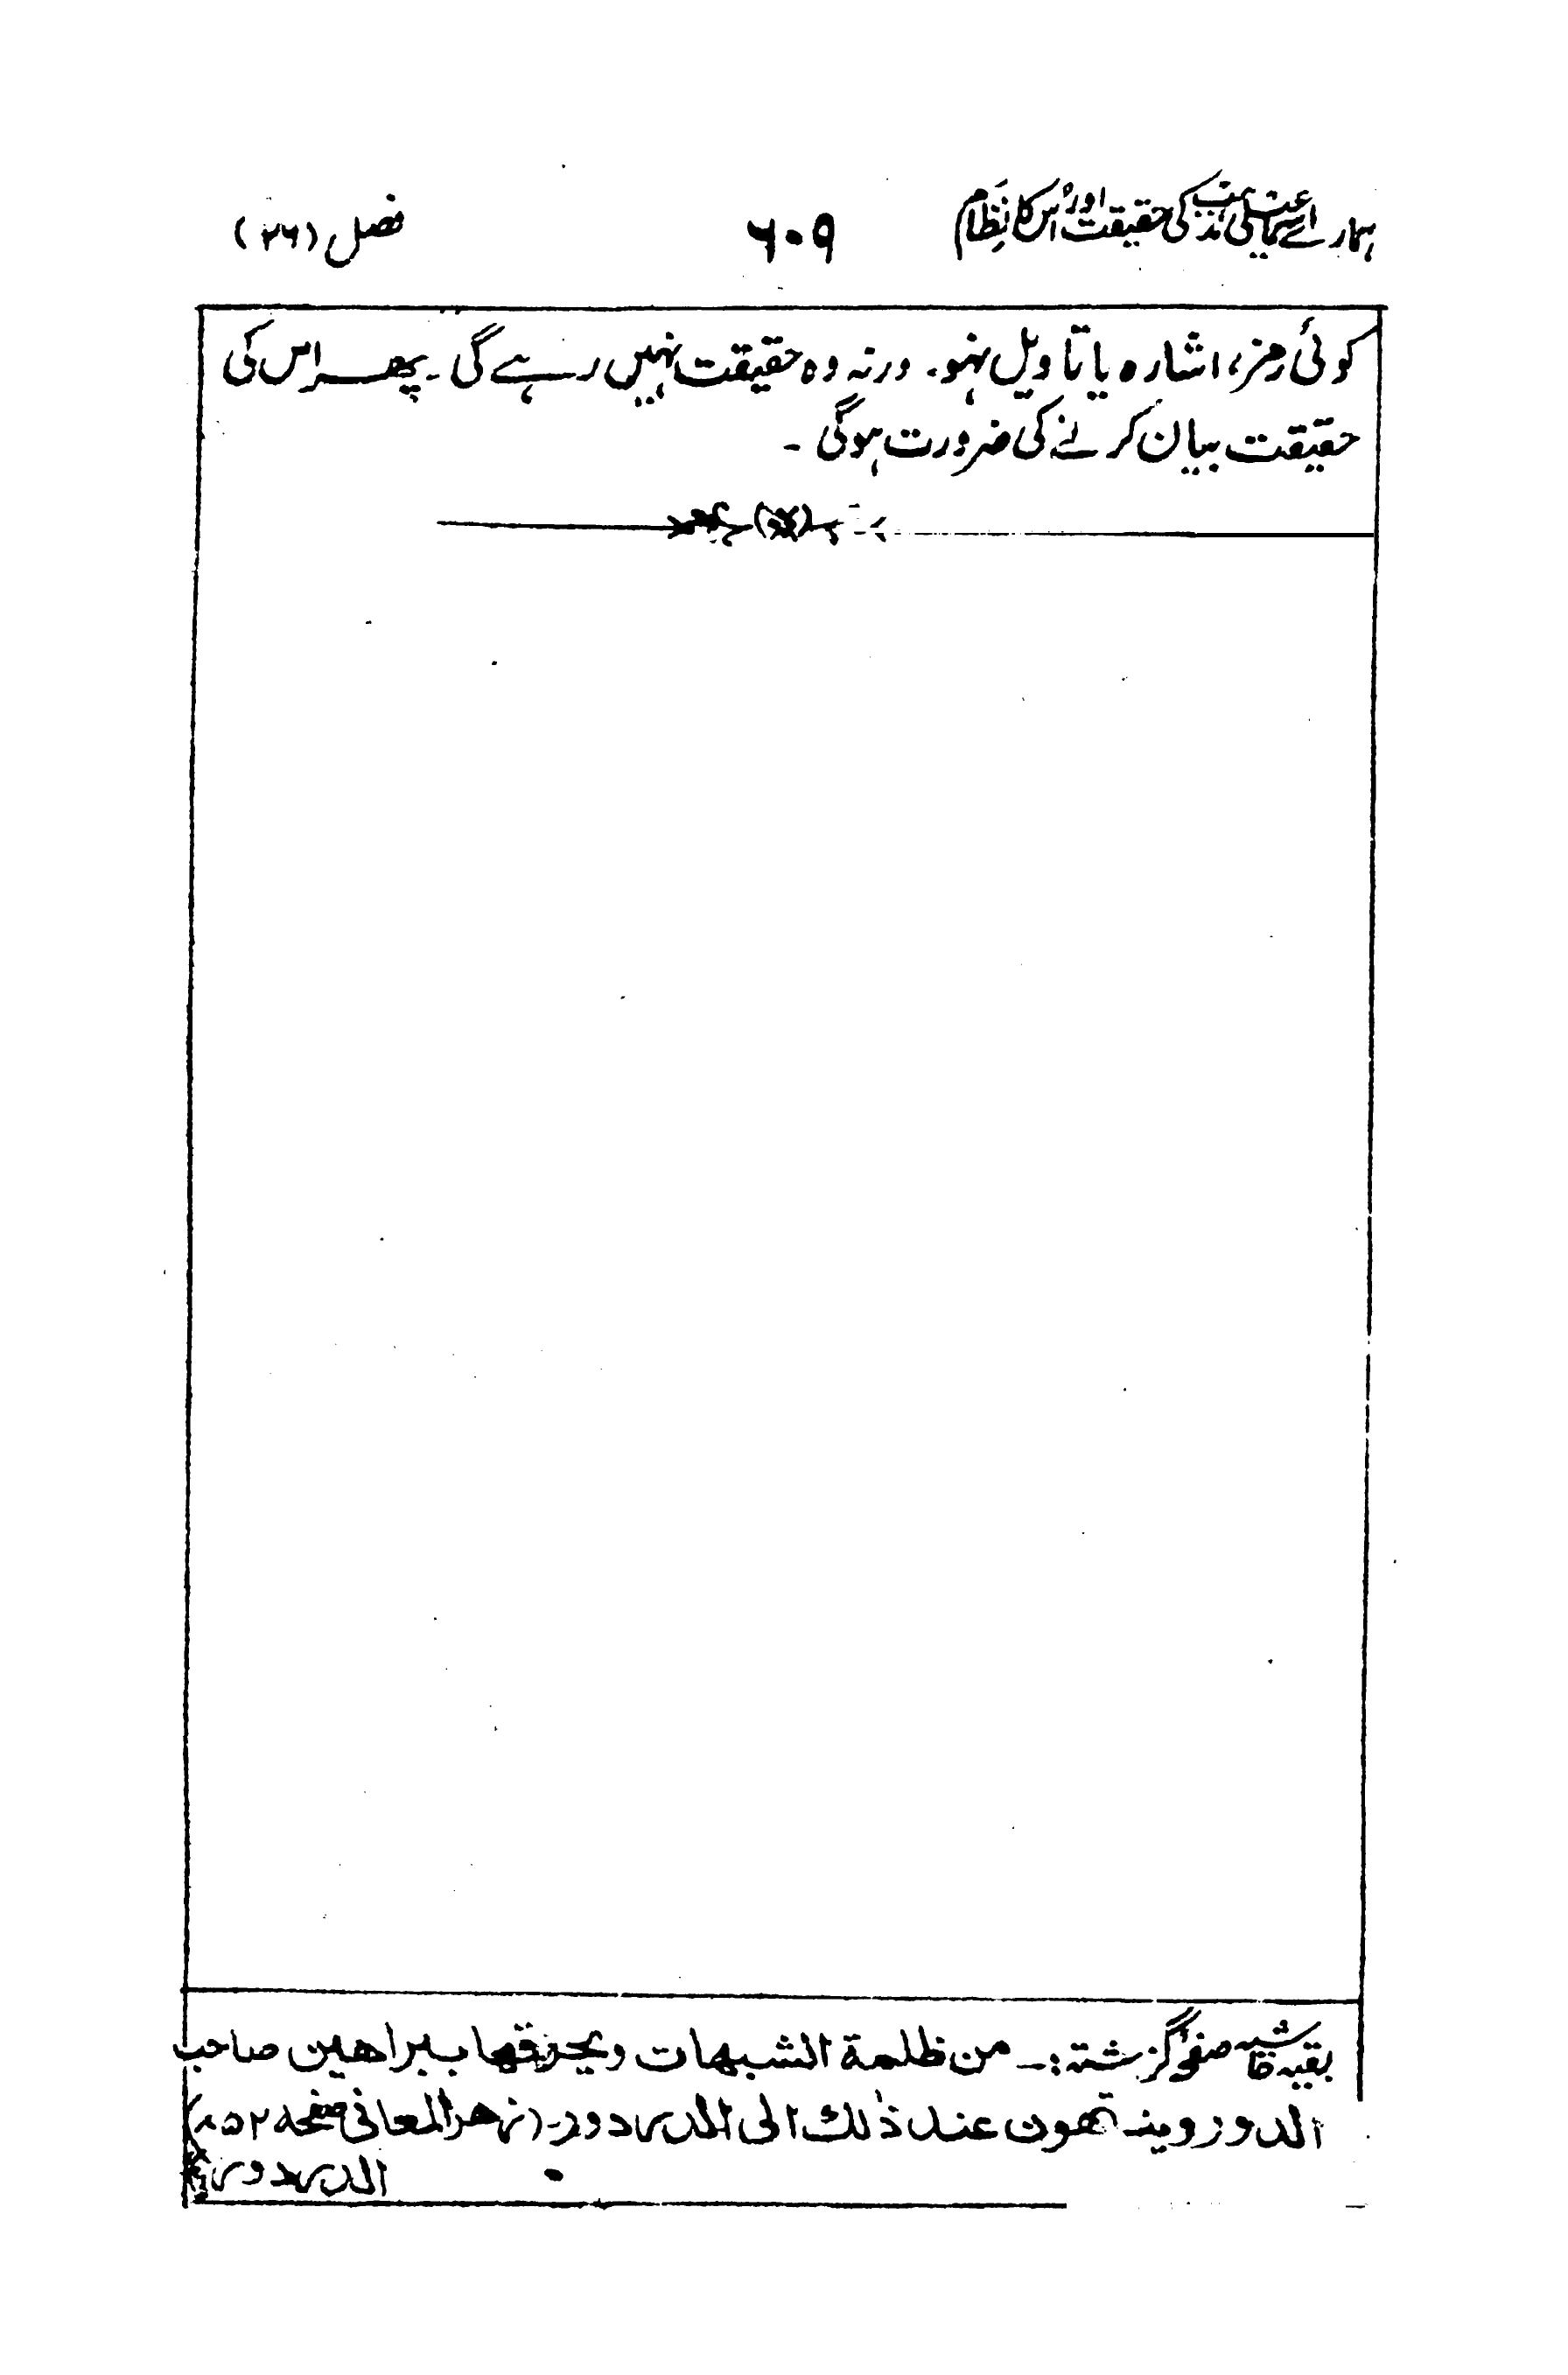 ہمارے اسماعیلی مذہب کی حقیقت اور اس کا نظام ۶۰۹ فصل (۲۶)
کوئی رمز، اشارہ یا تاویل نہو۔ ورنہ وہ حقیقت نہیں رہے گی۔ پھر اس کی
حقیقت بیان کرنے کی ضرورت ہوگی ۔
بقیہ حاشیہ صفحۂ گزشتہ :۔ من ظلمة الشبهات ويحرقها ببراهين صاحب
الدور وينتهون عند ذٰلك الى الدردور۔ (زهر المعانى صفحہ
الدردور